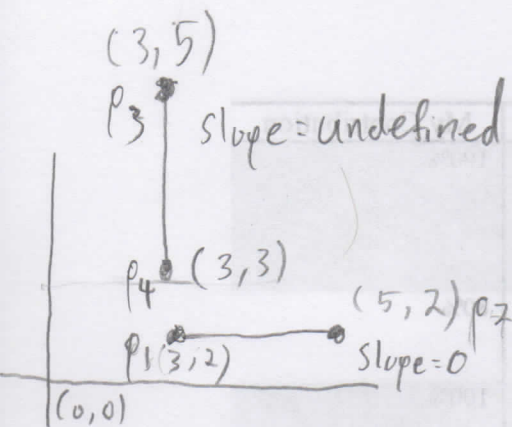 (3,5)
P3 slope = undefined
P4 (3,3)
(5,2) P2
P1 (3,2)
Slope = 0
(0,0)